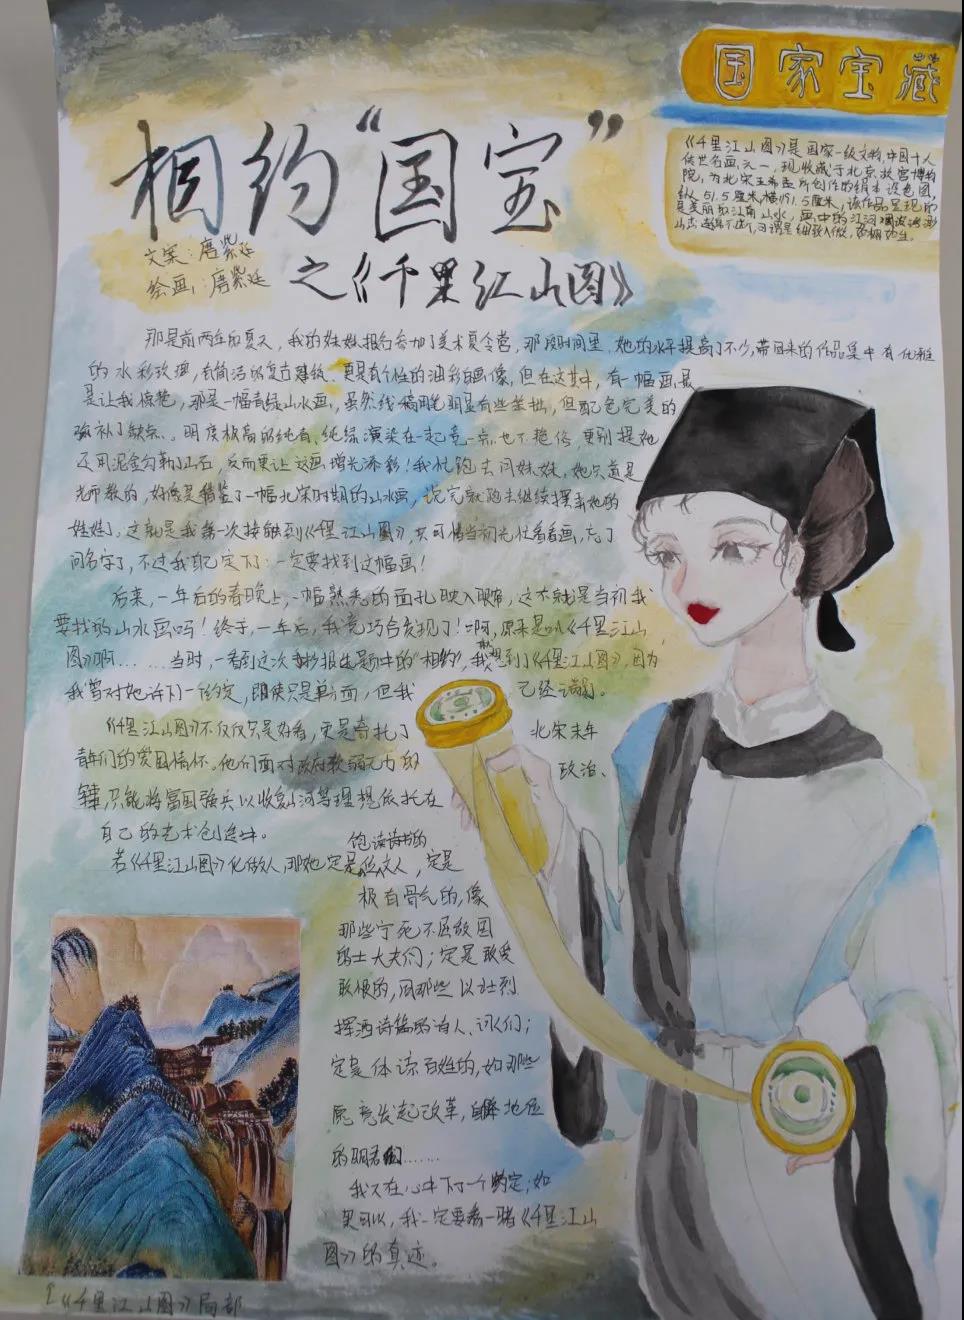 国家宝藏
相约“国宝”
之《千里江山图》
文案：唐紫廷
绘画：唐紫廷
《千里江山图》是国家一级文物，中国十大
传世名画之一，现收藏于北京故宫博物
院，为北宋王希孟所创作的绢本设色图，
纵51.5厘米，横1191.5厘米，该作品呈现的
是美丽的江南山水，画中的江河烟波浩渺
山峦连绵不断，可谓是细致入微，栩栩如生。
那是前两年的夏天，我的妹妹报名参加了美术夏令营，那段时间里，她的水平提高了不少，带回来的作品集中有优雅
的水彩玫瑰，有简洁的复古建筑，更是有个性的油彩自画像，但在这其中，有一幅画最
是让我惊艳，那是一幅青绿山水画，虽然线稿明显有些笨拙，但配色完美的
弥补了缺点。明度极高的纯青、纯绿渲染在一起竟一点也不艳俗，更别提她
还用泥金勾勒了山石，反而更让这画增光添彩！我忙跑去问妹妹，她只道是
老师教的，好像是借鉴了一幅北宋时期的山水画，说完就跑去继续摆弄她的
娃娃，这就是我第一次接触到《千里江山图》，只可惜当初光忙着看画，忘了
问名字了，不过我自己定下：一定要找到这幅画！
后来，一年后的春晚上，一幅熟悉的面孔映入眼帘，这不就是当初我
要找的山水画吗！终于，一年后，我竟巧合发现了！啊，原来是叫《千里江山
图》啊……当时，一看到这次手抄报主题中的“相约”，我就想到了《千里江山图》，因为
我曾对她许下一约定，即使只是单方面，但我已经满足。
《千里江山图》不仅仅只是好看，更是寄托了北宋末年
青年们的爱国情怀。他们面对政府软弱无力的政治、
军事，只能将富国强兵以收复山河等理想依托在
自己的艺术创造中。
若《千里江山图》化做人，那她定是饱读诗书的文人，定是
极有骨气的，像
那些宁死不屈敌国
的士大夫们；定是敢爱
敢恨的，同那些以壮烈
挥洒诗篇的诗人、词人们；
定是体谅百姓的，如那些
愿意发起改革，自降地位
的明君们……
我又在心中下了一个约定；如
果可以，我一定要看一睹《千里江山
图》的真迹。
《千里江山图》局部